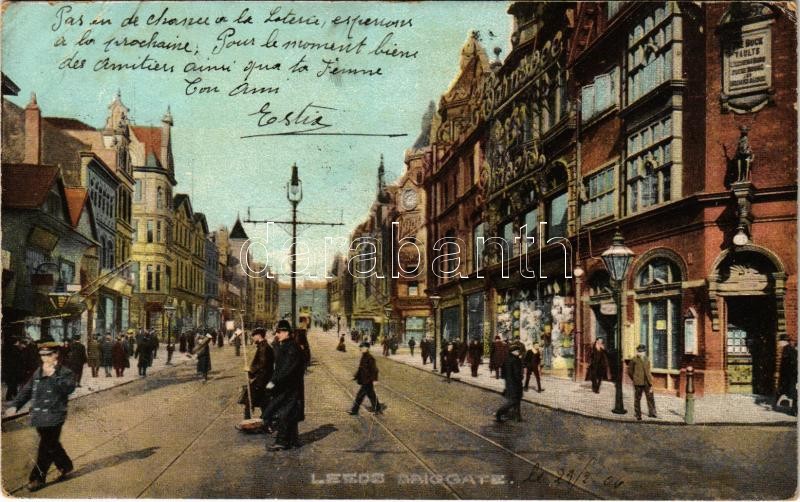 Pas eu de chance à la Loterie, espérons
à la prochaine, Pour le moment bien
des Amitiers ainsi qua ta Femme
Ton Ami
BUCK
VAULTS
darabanth
LEEDS BRIGGATE.
le 29/2 04